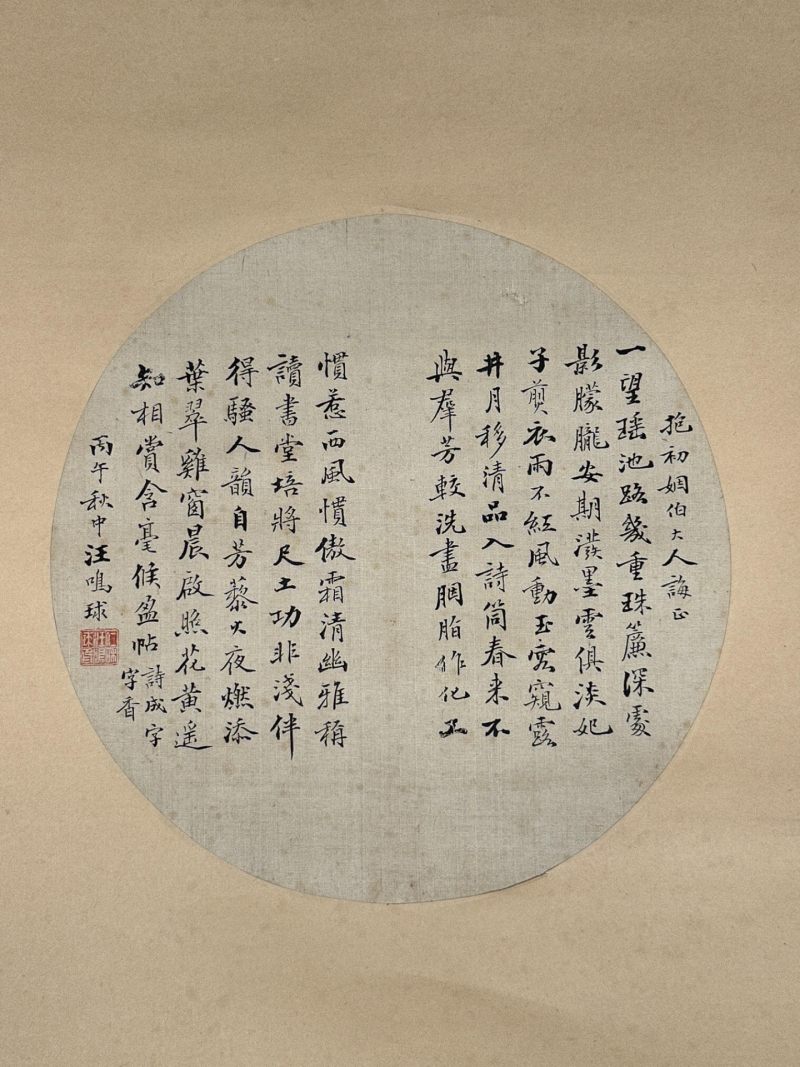 抱初姻伯大人誨正
一望瑤池路幾重珠簾深處
影朦朧安期潑墨雲俱淡妃
子剪衣雨不紅風動玉窗窺露
井月移清品入詩筒春來不
與羣芳較洗盡胭脂作化工
慣惹西風慣傲霜清幽雅稱
讀書堂培將尺土功非淺伴
得騷人韻自芳藜火夜燃添
葉翠雞窗晨啟照花黃遙
知相賞含毫候盈帖詩成字
字香
丙午秋中汪鳴球